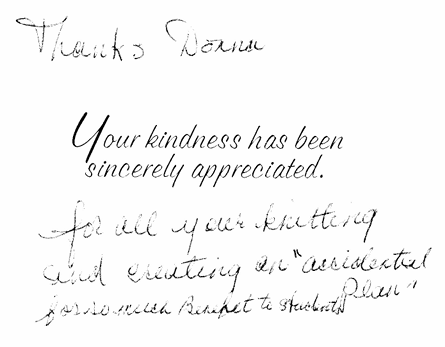 Thanks Donna
Your kindness has been
sincerely appreciated.
for all your knitting
and creating an "accidental
Plan"
for so much Benefit to students